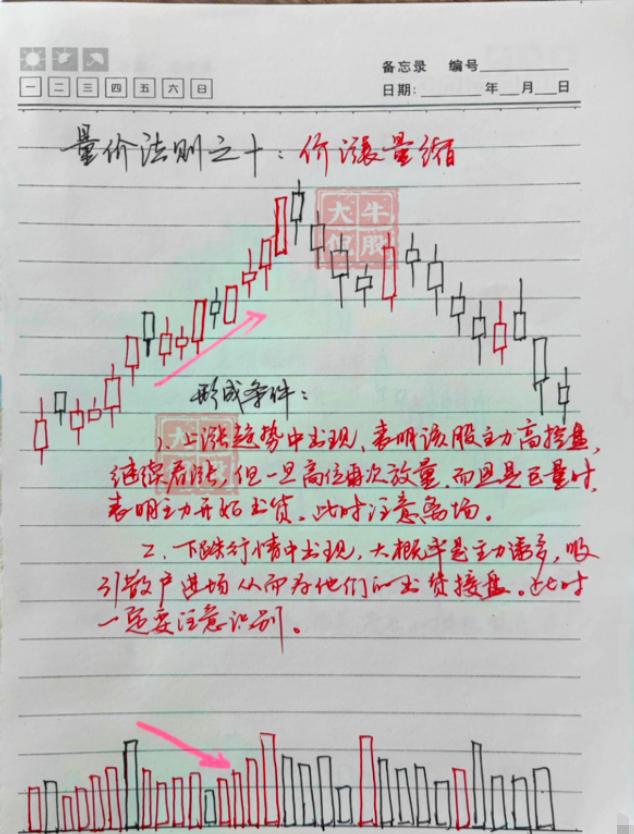 备忘录 编号
一 二 三 四 五 六 日
日期: 年 月 日
量价法则之十：价涨量缩
大牛
侃股
形成条件：
1、上涨趋势中出现，表明该股主力高控盘，
继续看涨，但一旦高位再次放量，而且是巨量时，
表明主力开始出货。此时注意离场。
2、下跌行情中出现，大概率是主力诱多，吸
引散户进场从而为他们的出货接盘。此时
一定要注意识别。